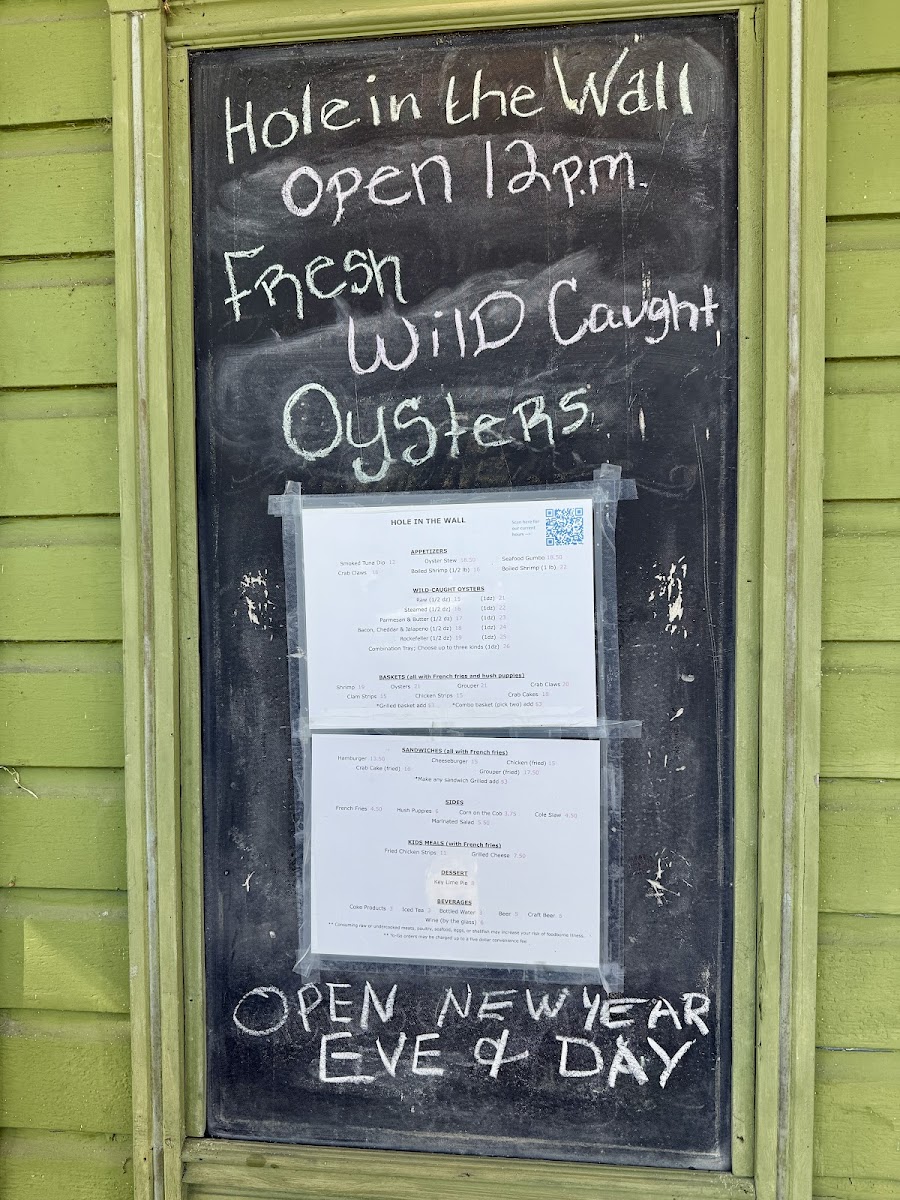 Hole in the Wall
Open 12 p.m.
Fresh
Wild Caught
Oysters
HOLE IN THE WALL
Scan here for
our current
hours
APPETIZERS
Smoked Tuna Dip 12 Oyster Stew 10.50 Seafood Gumbo 10.50
Crab Claws Boiled Shrimp (1/2 lb) 16 Boiled Shrimp (1 lb)
WILD-CAUGHT OYSTERS
Raw (1/2 dz) 15 (1dz) 21
Steamed (1/2 dz) 16 (1dz) 22
Parmesan & Butter (1/2 dz) 17 (1dz) 23
Bacon, Cheddar & Jalapeno (1/2 dz) 18 (1dz) 24
Rockefeller (1/2 dz) 19 (1dz) 25
Combination Tray; Choose up to three kinds (1dz) 26
BASKETS (all with French fries and hush puppies)
Shrimp 19 Oysters 21 Grouper 21 Crab Claws 20
Clam Strips 15 Chicken Strips 15 Crab Cakes 18
*Grilled basket add $3 *Combo basket (pick two) add $3
SANDWICHES (all with French fries)
Hamburger 13.50 Cheeseburger 15 Chicken (fried) 15
Crab Cake (fried) 16 Grouper (fried) 17.50
*Make any sandwich Grilled add $3
SIDES
French Fries 4.50 Hush Puppies 6 Corn on the Cob 3.75 Cole Slaw 4.50
Marinated Salad 5.50
KIDS MEALS (with French fries)
Fried Chicken Strips 11 Grilled Cheese 7.50
DESSERT
Key Lime Pie
BEVERAGES
Coke Products 3 Iced Tea 3 Bottled Water Beer 5 Craft Beer 6
Wine (by the glass) 6
** Consuming raw or undercooked meats, poultry, seafood, eggs, or shellfish may increase your risk of foodborne illness.
** To-Go orders may be charged up to a five dollar convenience fee
OPEN NEW YEAR
EVE & DAY